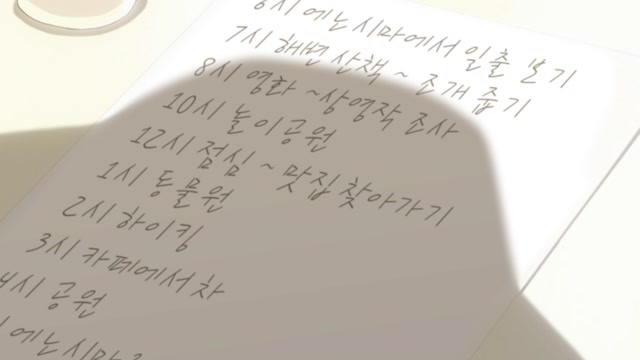 6시 에노시마에서 일출 보기
7시 해변 산책 ~ 조개 줍기
8시 영화 ~상영작 조사
10시 놀이공원
12시 점심 ~ 맛집 찾아가기
1시 동물원
2시 하이킹
3시 카페에서 차
4시 공원
에노시마